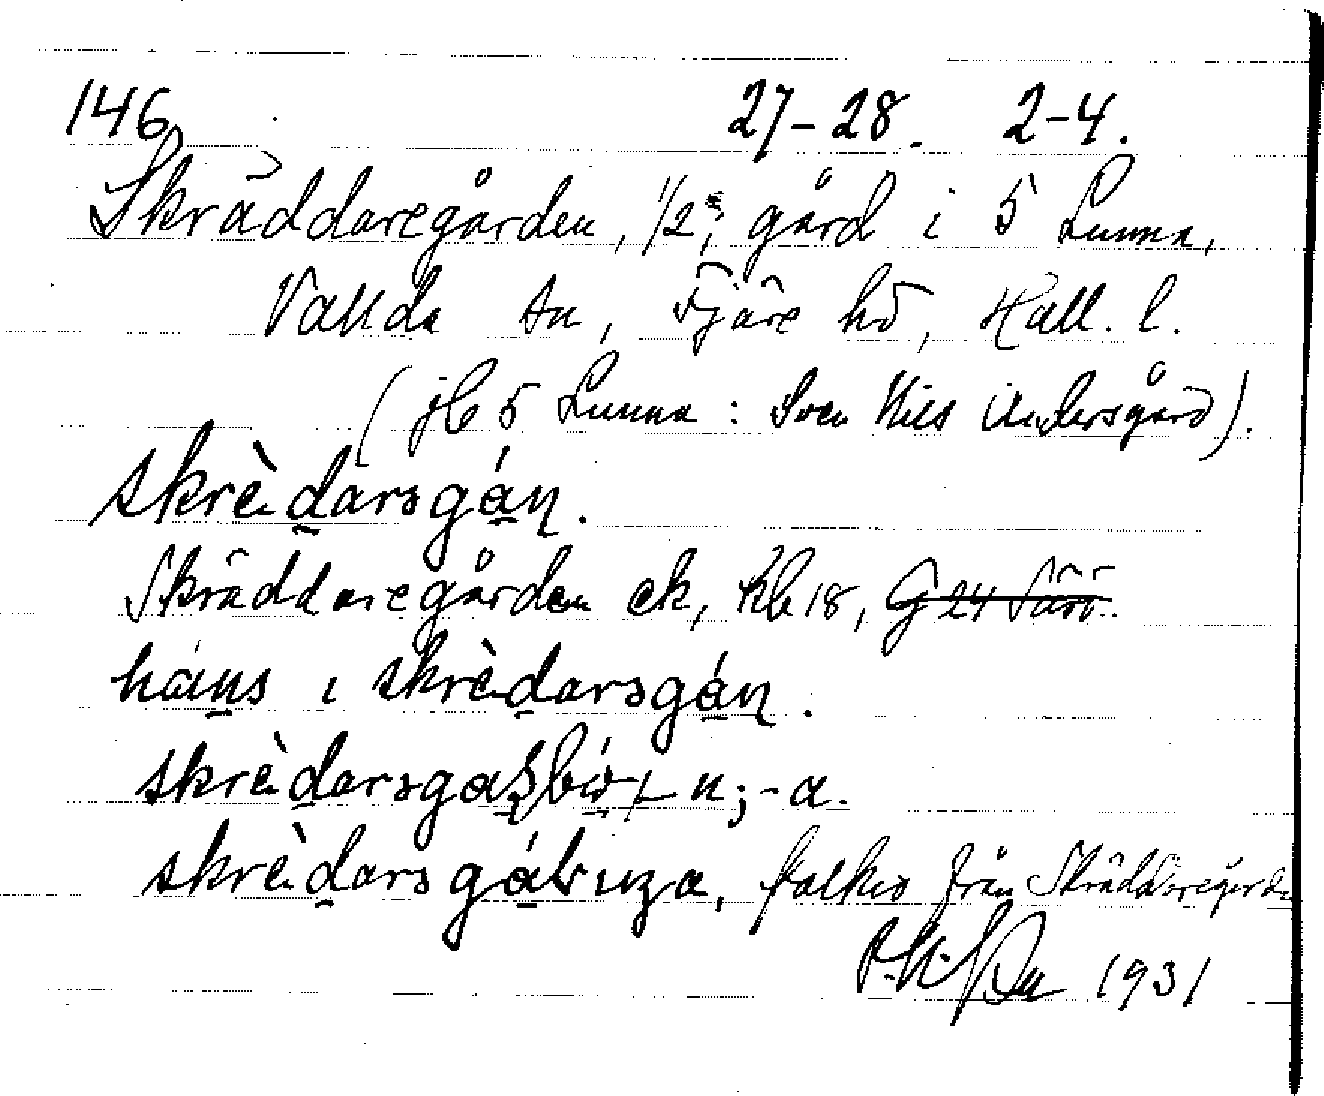 146 27-28. 2-4.
Skräddaregården, 1/2, gård i 5 Lunna,
Vallda sn, Fjäre hd, Hall. l.
(jb 5 Lunna: Sven Nils Andersgård).
skrèdarsgán.
Skräddaregården ek, kb 18, G 24 Särö.
háns i skrèdarsgán.
skrèdarsga n; -a.
skrèdarsgábuza, folket från Skräddaregården
1931